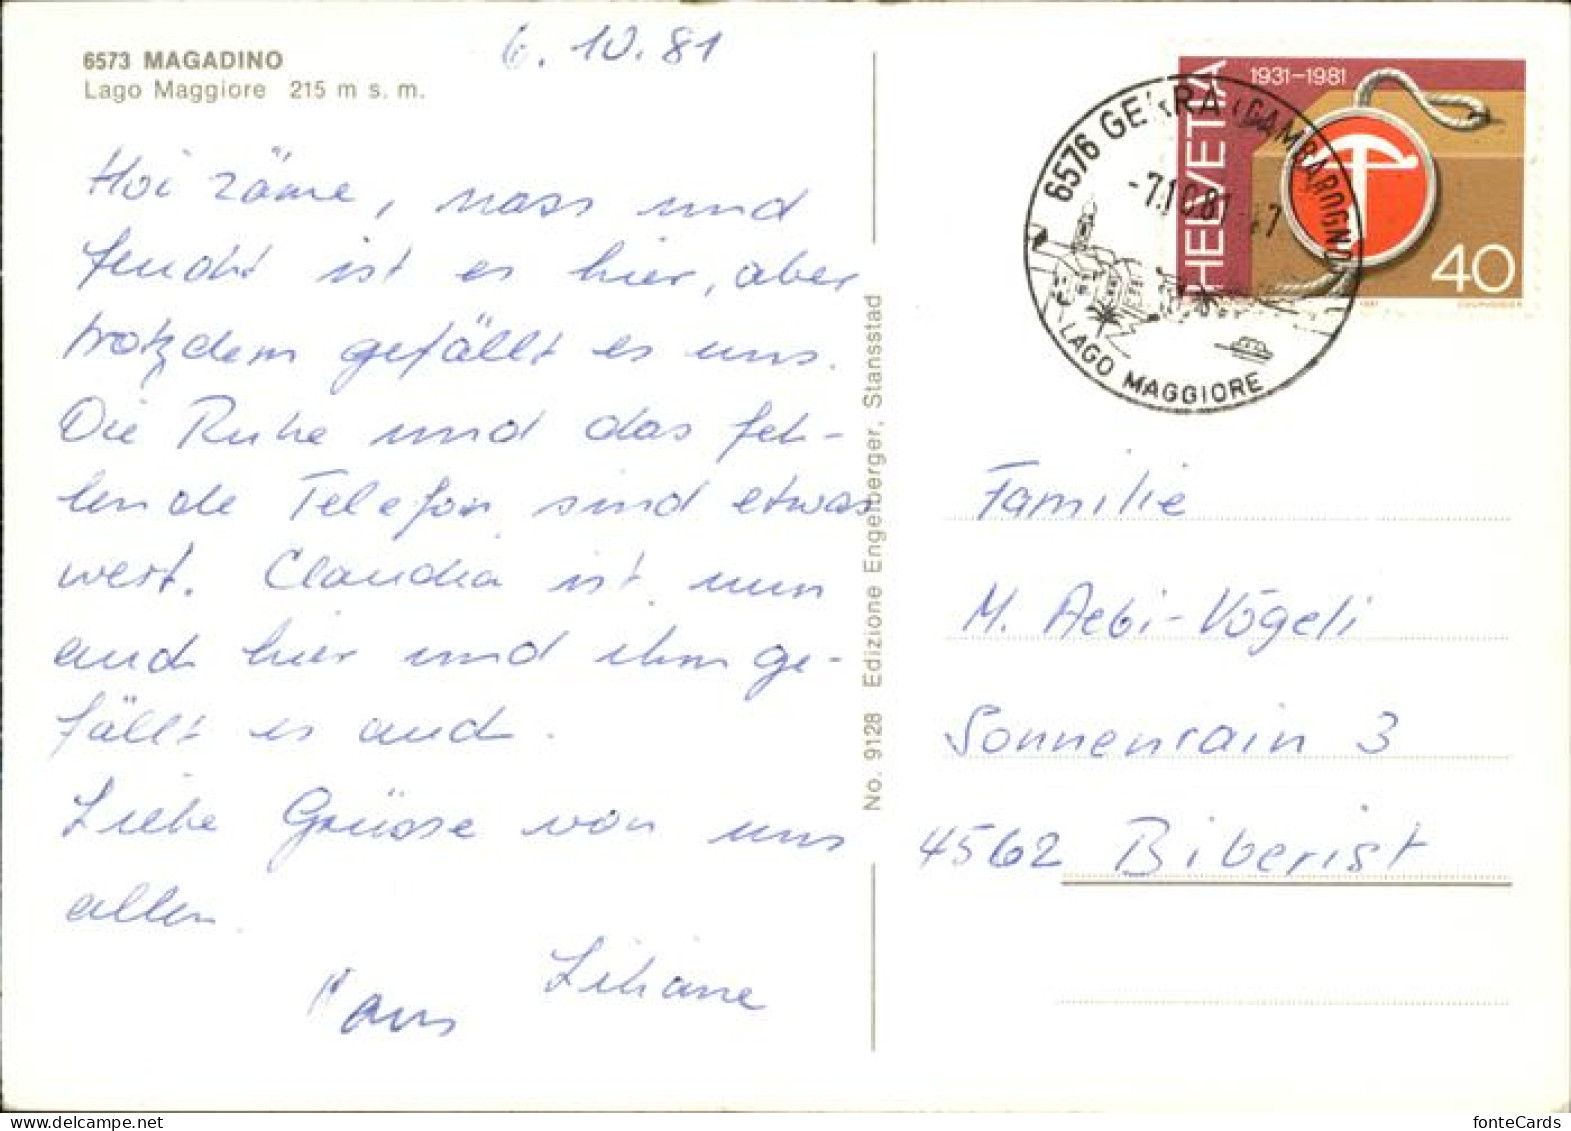 6573 MAGADINO
Lago Maggiore 215 m s. m.
6. 10. 81
Hoi zäme, nass und
feucht ist es hier, aber
trotzdem gefällt es uns.
Die Ruhe und das feh-
lende Telefon sind etwas
wert. Claudia ist nun
auch hier und ihm ge-
fällt es auch.
Liebe Grüsse von uns
allen
Liliane
No. 9128 Edizione Engelberger, Stansstad
HELVETIA
1931-1981
40
6576 GERRA (GAMBAROGNO)
-7.10.81
LAGO MAGGIORE
Familie
M. Aebi-Vögeli
Sonnenrain 3
4562 Biberist
fonteCards